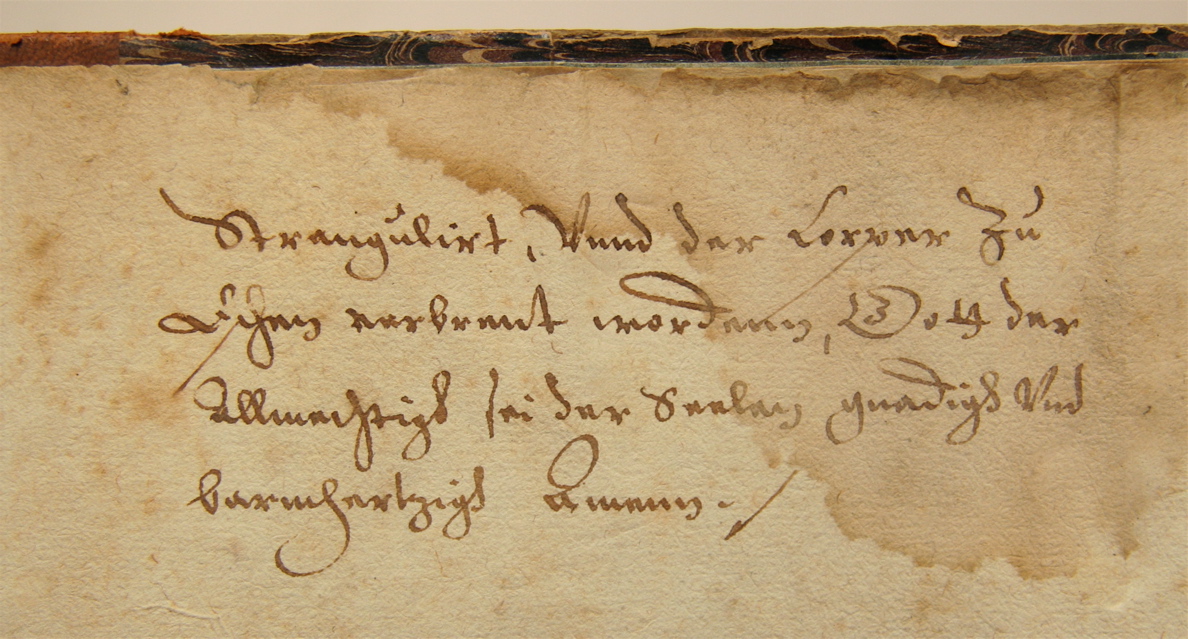 Strangulirt, Vnnd der Corper Zu
Eschen verbrent wordenn, Gott der
Allmechtige sei der Seelen gnadigs Vnd
barmhertzigs Amenn.